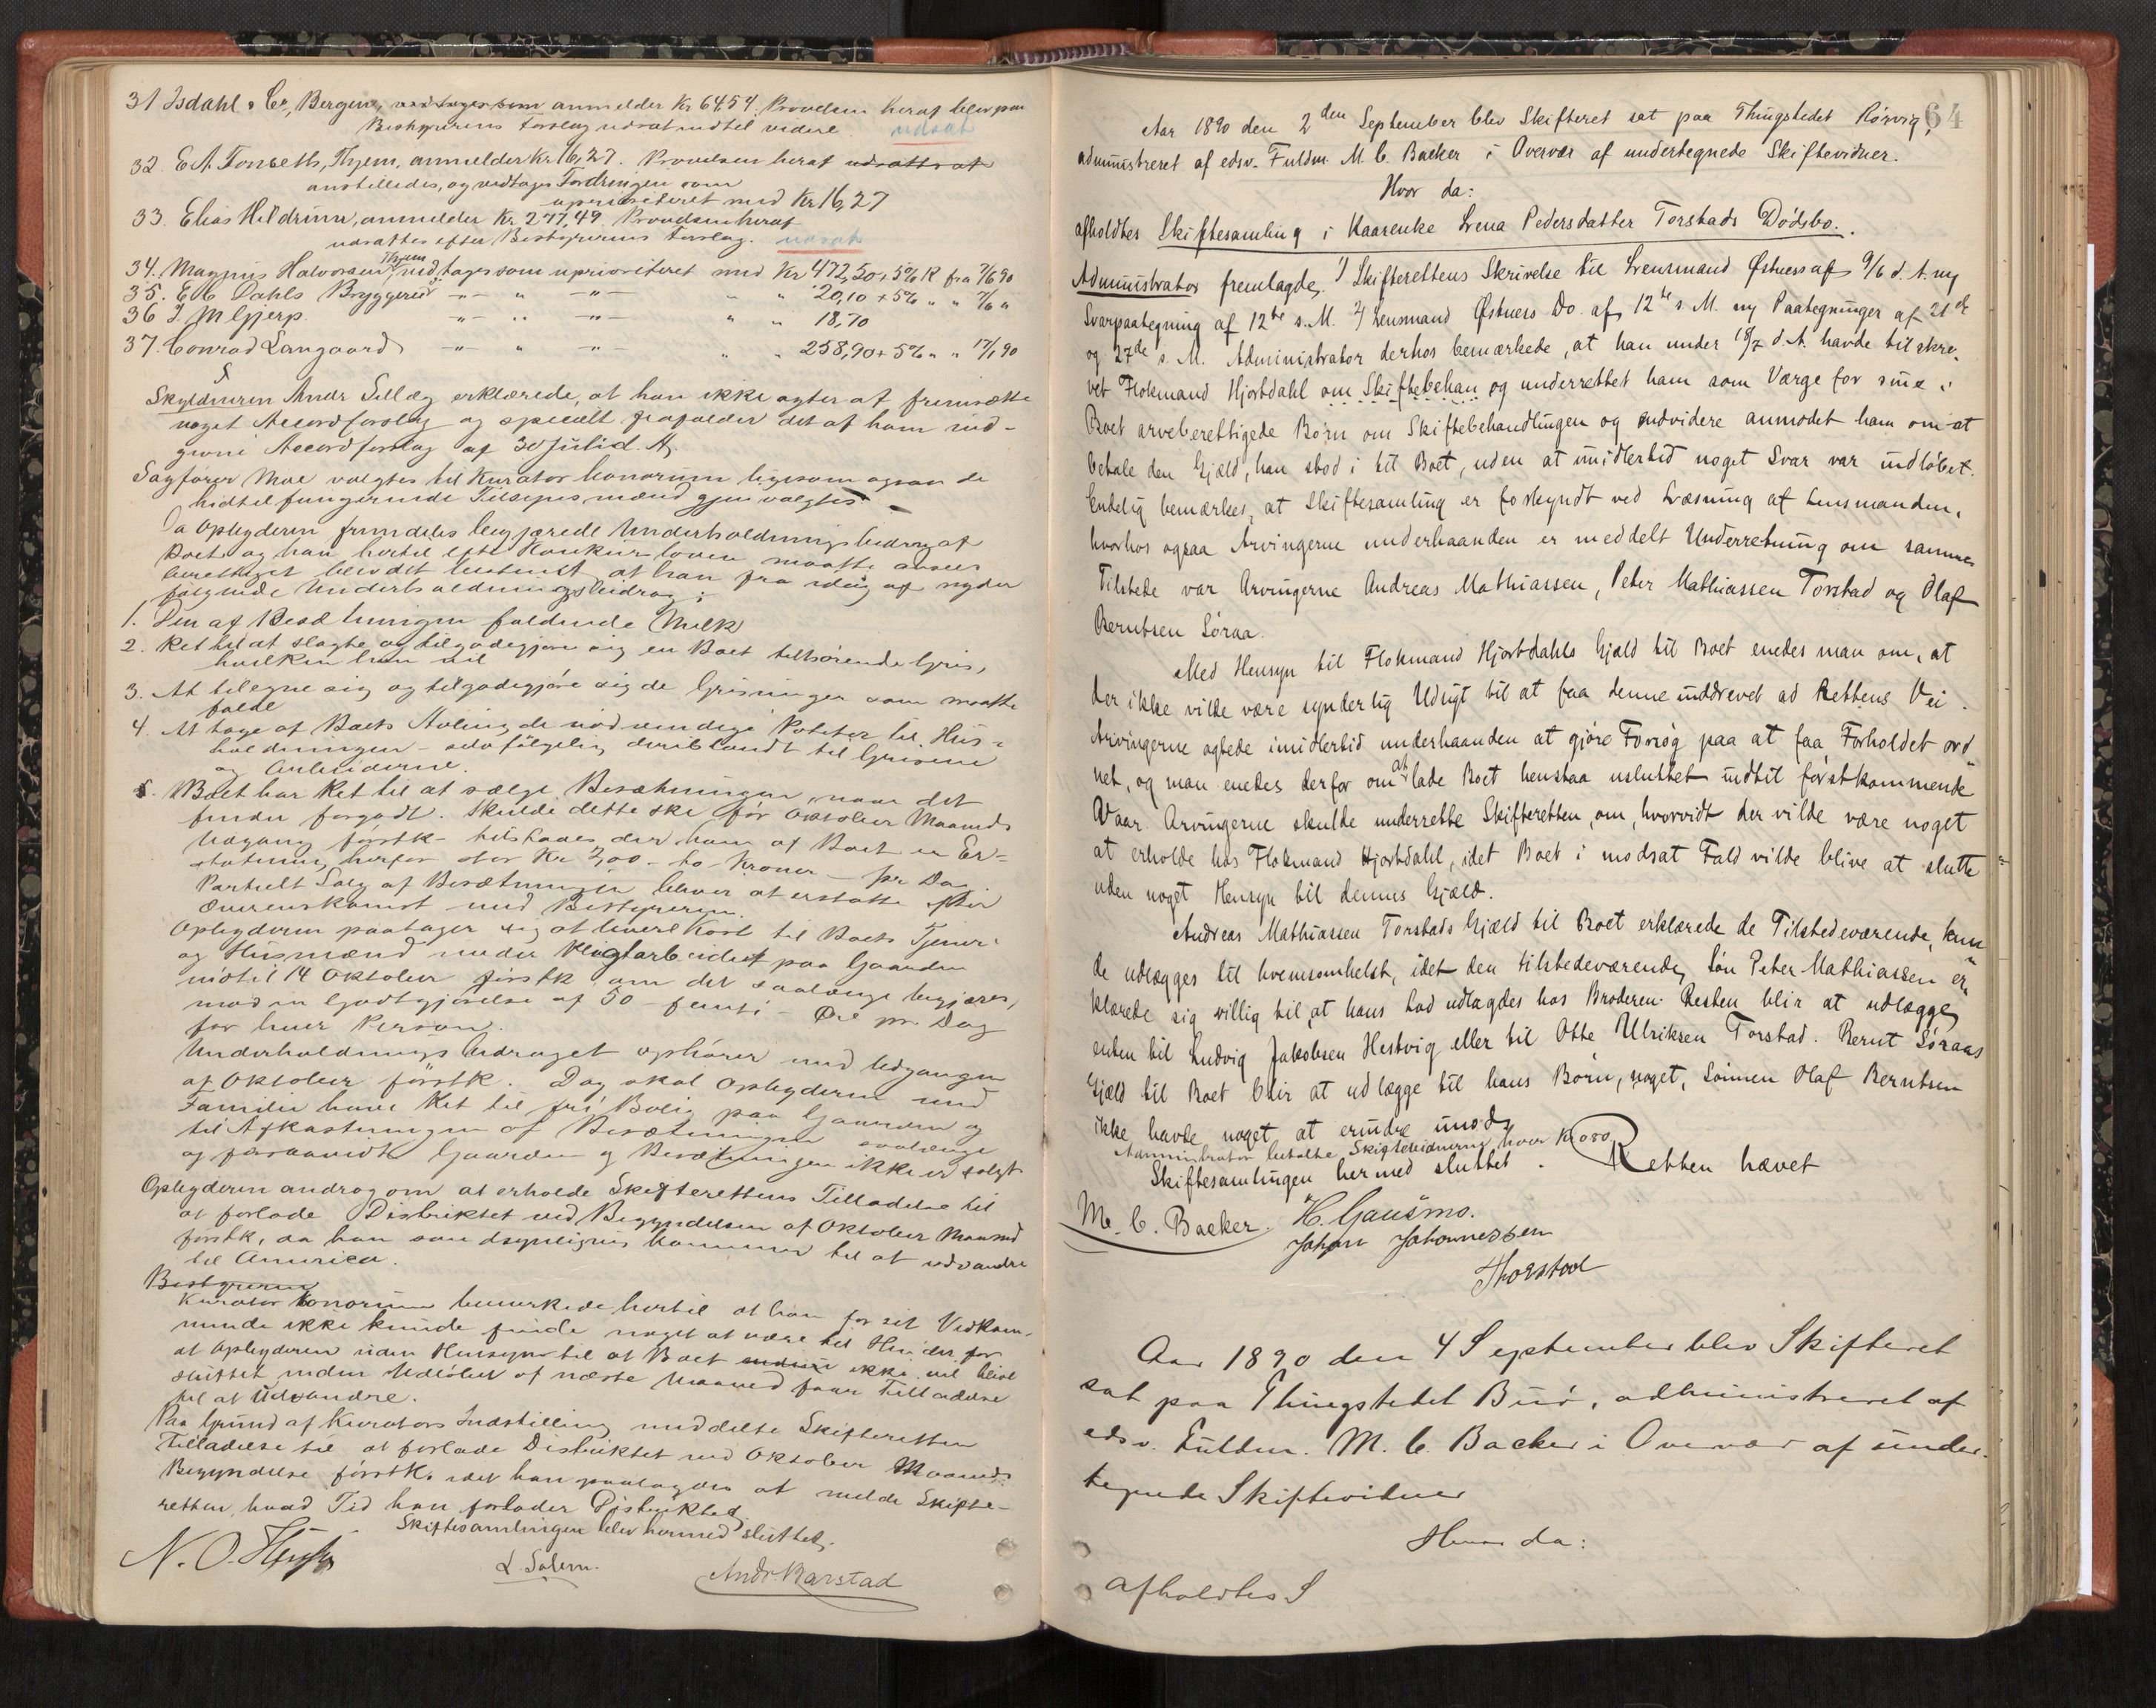 31 Isdahl & Co, Bergen, vedtages som anmelder Kr 64,54. Prøvelsen heraf blev paa
Bestyrerens Forslag udsat indtil videre. udsat
32. E A. Tonseth, Thjem, anmelder Kr 16,27. Prøvelsen heraf udsattes at
anstilledes, og vedtages Fordringen som
uprioriteret med Kr 16,27
33. Elias Hildrum, anmelder Kr 277,49. Prøvelsen heraf
udsattes efter Bestyrerens Forslag. udsat
34. Magnus Halvorsen Thjem vedtages som uprioriteret med Kr 472,50 + 5% R fra 7/6 90
35. E C Dahls Bryggeri -"- " -"- " " 20,10 + 5% " " 7/6 "
36 J. M Gjerp. -"- " -"- " " 18,70
37. Conrad Langaard -"- " -"- " " 258,90 + 5% " " 17/1 90
§
Skyldneren Andr Sellæg erklærede, at han ikke agter at fremsætte
noget Accordforslag og specielt frafalder det af ham ind-
givne Accordforslag af 30 Juli d. A.
Sagfører Moe valgtes til Kurator bonorum ligesom ogsaa de
hidtil fungerende Tilsynsmænd gjenvalgtes. —
Da Opbyderen fremdeles begjærede Underholdningsbidrag af
Boet og han hertil efter Konkursloven maatte ansees
berettiget blev det bestemt at han fra idag af nyder
følgende Underholdningsbidrag:
1. Den af Besætningen faldende Melk
2. Ret til at slagte og tilgodegjøre sig en Boet tilhørende Gris,
hvilken han vil
3. At tilegne sig og tilgodegjøre sig de Grisninger som maatte
falde
4. At tage af Boets Avling de nødvendige Poteter til Hus-
holdningen - selvfølgelig deriblandt til Grisene
og Arbeiderne.
5. Boet har Ret til at sælge Besætningen, naar det
finder forgodt. Skulde dette ske før Oktober Maaneds
Udgang førstk. tilstaaes der ham af Boet en Er-
statning herfor stor Kr 2,00 - to Kroner - pr Dag.
Partielt Salg af Besætningen bliver at erstatte efter
Overenskomst med Bestyreren.
Opbyderen paatager sig at levere Kost til Boets Tjener-
og Husmænd under Pligtarbeidet paa Gaarden
indtil 14 Oktober førstk. om det saalænge begjæres,
mod en Godtgjørelse af 50 - femti - Øre pr. Dag
for hver Person.
Underholdningsbidraget ophører med Udgangen
af Oktober førstk. Dog skal Opbyderen med
Familie have Ret til fri Bolig paa Gaarden og
til Afkastningen af Besætningen saalænge
og forsaavidt Gaarden og Besætningen ikke er solgt
Opbyderen androg om at erholde Skifterettens Tilladelse til
at forlade Distriktet ved Begyndelsen af Oktober Maaned
førstk, da han sandsynligvis kommer til at udvandre
til America.
Bestyreren
Kurator bonorum bemærkede hertil at han for sit Vedkom-
mende ikke kunde finde noget at være til Hinder for
at Opbyderen uden Hensyn til at Boet endnu ikke vil blive
sluttet inden Udløbet af næste Maaned faar Tilladelse
til at udvandre.
Paa Grund af Kurators Indstilling meddelte Skifteretten
Tilladelse til at forlade Distriktet ved Oktober Maaneds
Begyndelse førstk. idet han paalagdes at melde Skifte-
retten, hvad Tid han forlader Distriktet
Skiftesamlingen blev hermed sluttet.
L. Salem. Andr Barstad
64
Aar 1890 den 2den September blev Skifteret sat paa Thingstedet Rørvig,
administreret af edsv. Fuldm. M. C. Backer i Overvær af undertegnede Skiftevidner.
Hvor da:
afholdtes Skiftesamling i Kaarenke Lrena Pedersdatter Torstads Dødsbo.
Administrator fremlagde. 1) Skifterettens Skrivelse til Lensmand Østnes af 9/6 d. A. m
Svarpaategning af 12te s. M. 2) Lensmand Østnes Do. af 12te s. M. m Paategninger af 21de
og 27de s. M. Administrator derhos bemærkede, at han under 18/7 d. A. havde tilskre-
vet Flokmand Hjortdahl om Skiftebehan og underrettet ham som Værge for sine i
Boet arveberettigede Børn om Skiftebehandlingen og endvidere anmodet ham om at
betale den Gjæld, han stod i til Boet, uden at imidlertid noget Svar var indløbet.
Endelig bemærkes, at Skiftesamling er forkyndt ved Læsning af Lensmanden,
hvorhos ogsaa Arvingerne underhaanden er meddelt Underretning om samme
Tilstede var Arvingerne Andreas Mathiassen, Peter Mathiassen Torstad og Olaf
Berntsen Søraa.
Med Hensyn til Flokmand Hjortdahls Gjæld til Boet enedes man om, at
der ikke vilde være synderlig Udsigt til at faa denne inddrevet ad Rettens Vei.
Arvingerne agtede imidlertid underhaanden at gjøre Forsøg paa at faa Forholdet ord-
net, og man enedes derfor om at lade Boet henstaa usluttet indtil førstkommende
Vaar. Arvingerne skulde underrette Skifteretten, om, hvorvidt der vilde være noget
at erholde hos Flokmand Hjortdahl, idet Boet i modsat Fald vilde blive at slutte
uden noget Hensyn til dennes Gjæld.
Andreas Mathiassen Torstads Gjæld til Boet erklærede de Tilstedeværende, kun-
de udlægges til hvemsomhelst, idet den tilstedeværende, Søn Peter Mathiassen er-
klærede sig villig til, at hans Lod udlagdes hos Broderen. Resten blir at udlægge
enten til Ludvig Jakobsen Hestvig eller til Otte Ulriksen Torstad. Bernt Søraas
Gjæld til Boet blir at udlægge til hans Børn, noget, Sønnen Olaf Berntsen
ikke havde noget at erindre imod.
Administrator betalte Skiftevidnerne hver Kr 0,80
Skiftesamlingen hermed sluttet. Retten hævet
M. C. Backer. H. Gansmo.
Johan Johannessen
Thorstad
Aar 1890 den 4 September blev Skifteret
sat paa Thingstedet Buø, administreret af
edsv. Fuldm. M. C. Backer i Overvær af under-
tegnede Skiftevidner
Hvor da:
afholdtes S